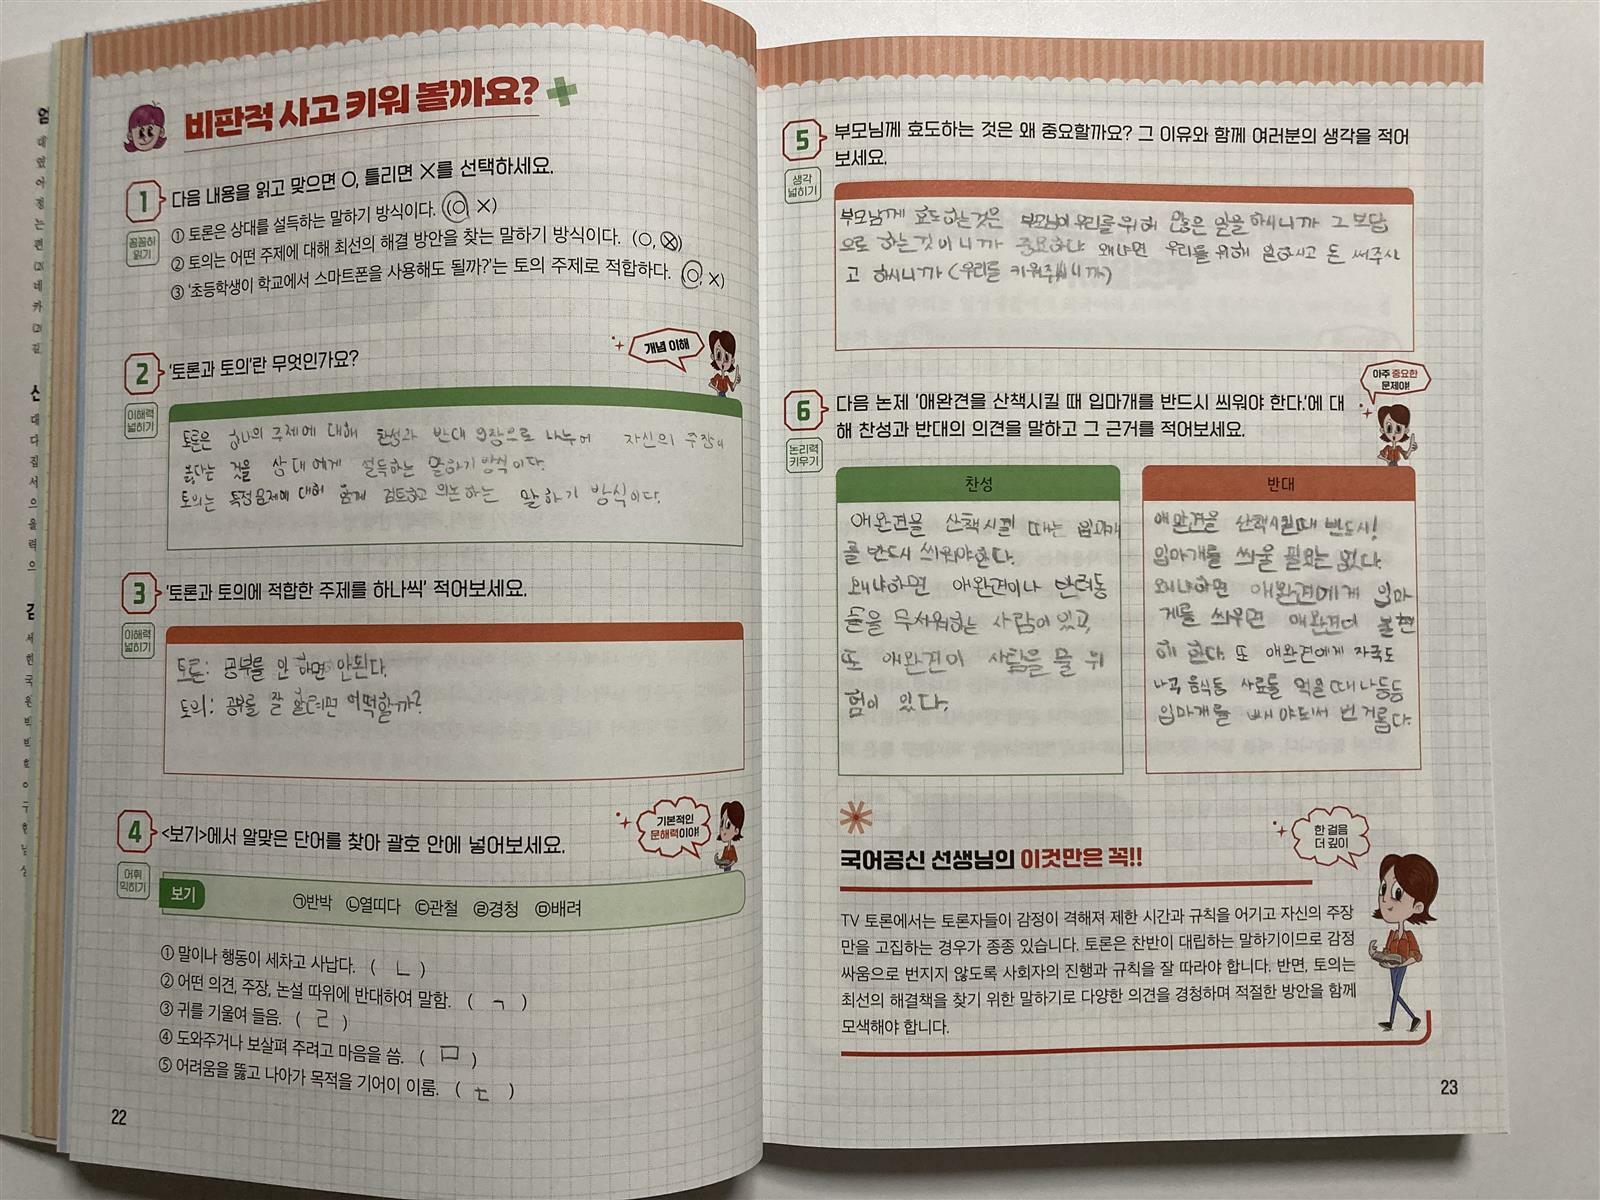 비판적 사고 키워 볼까요?
1 다음 내용을 읽고 맞으면 O, 틀리면 X를 선택하세요.
꼼꼼히
읽기
① 토론은 상대를 설득하는 말하기 방식이다. (O, X)
② 토의는 어떤 주제에 대해 최선의 해결 방안을 찾는 말하기 방식이다. (O, X)
③ '초등학생이 학교에서 스마트폰을 사용해도 될까?'는 토의 주제로 적합하다. (O, X)
2 '토론과 토의'란 무엇인가요?
개념 이해
이해력
넓히기
토론은 하나의 주제에 대해 찬성과 반대 입장으로 나누어 자신의 주장이
옳다는 것을 상대에게 설득하는 말하기 방식이다.
토의는 특정문제에 대해 함께 검토하고 의논하는 말하기 방식이다.
3 '토론과 토의에 적합한 주제를 하나씩' 적어보세요.
이해력
넓히기
토론: 공부를 안 하면 안된다.
토의: 공부를 잘 하려면 어떡할까?
4 <보기>에서 알맞은 단어를 찾아 괄호 안에 넣어보세요.
기본적인
문해력이야!
어휘
익히기
보기
㉠반박 ㉡열띠다 ㉢관철 ㉣경청 ㉤배려
① 말이나 행동이 세차고 사납다. ( ㄴ )
② 어떤 의견, 주장, 논설 따위에 반대하여 말함. ( ㄱ )
③ 귀를 기울여 들음. ( ㄹ )
④ 도와주거나 보살펴 주려고 마음을 씀. ( ㅁ )
⑤ 어려움을 뚫고 나아가 목적을 기어이 이룸. ( ㄷ )
22
5 부모님께 효도하는 것은 왜 중요할까요? 그 이유와 함께 여러분의 생각을 적어
보세요.
생각
넓히기
부모님께 효도하는것은 부모님이 우리를 위해 많은 일을 하시니까 그 보답
으로 하는것이니까 중요하다 왜냐면 우리를 위해 일하시고 돈 써주시
고 하시니까 (우리를 키워주시니까)
아주 중요한
문제야!
6 다음 논제 '애완견을 산책시킬 때 입마개를 반드시 씌워야 한다.'에 대
해 찬성과 반대의 의견을 말하고 그 근거를 적어보세요.
논리력
키우기
찬성
애완견을 산책시킬 때는 입마개
를 반드시 씌워야한다.
왜냐하면 애완견이나
들을 무서워하는 사람이 있고,
또 애완견이 사람을 물 위
험이 있다.
반대
애완견을 산책시킬때 반드시!
입마개를 씌울 필요는 없다.
왜냐하면 애완견에게 입마
게를 씌우면 애완견이 불편
해 한다. 또 애완견에게 자국도
나고 음식등 사료를 먹을 때나 등등
입마개를 빼야되서 번거롭다.
국어공신 선생님의 이것만은 꼭!!
한 걸음
더 깊이
TV 토론에서는 토론자들이 감정이 격해져 제한 시간과 규칙을 어기고 자신의 주장
만을 고집하는 경우가 종종 있습니다. 토론은 찬반이 대립하는 말하기이므로 감정
싸움으로 번지지 않도록 사회자의 진행과 규칙을 잘 따라야 합니다. 반면, 토의는
최선의 해결책을 찾기 위한 말하기로 다양한 의견을 경청하며 적절한 방안을 함께
모색해야 합니다.
23